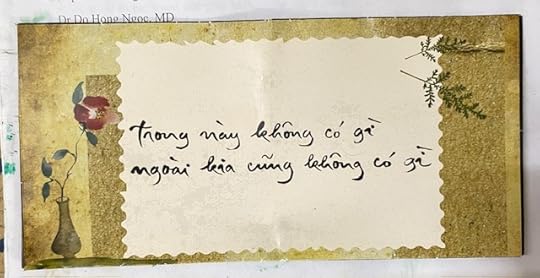 Dr Do Hong Ngoc, MD
trong này không có gì
ngoài kia cũng không có gì